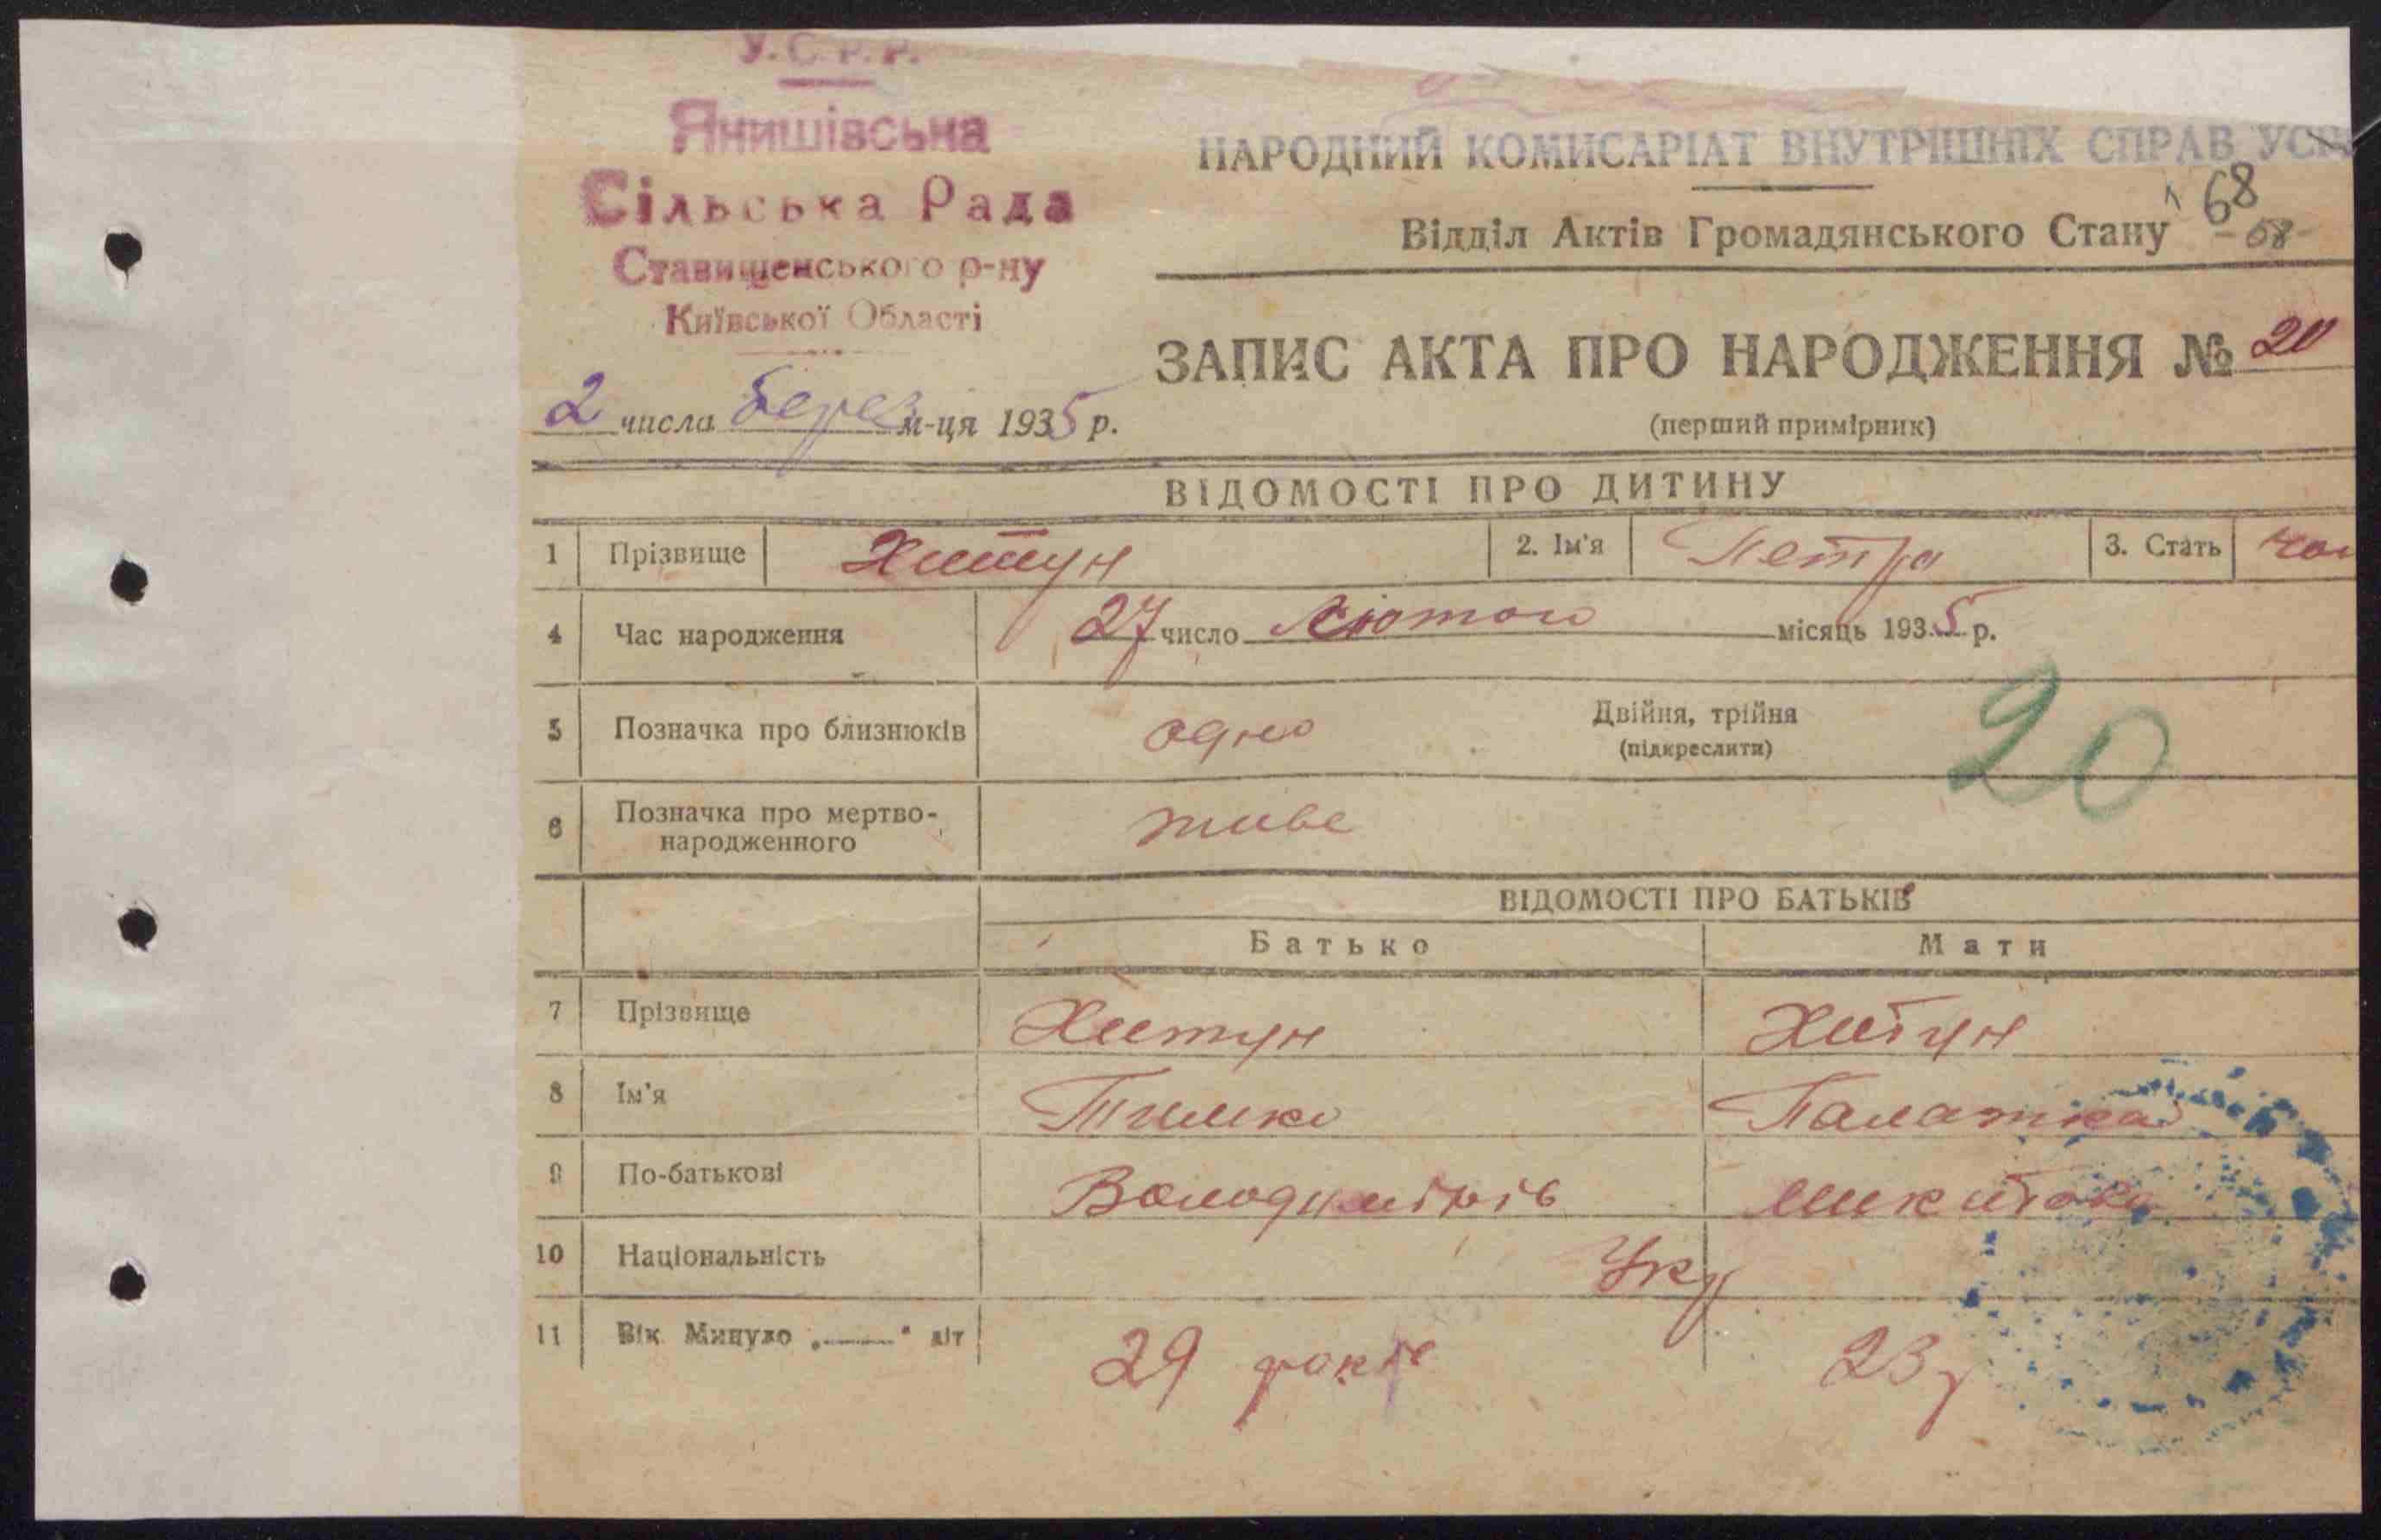 У.С.Р.Р.
Янишівська
Сільська Рада
Ставищенського р-ну
Київської Області
2 числа Берез м-ця 1935 р.
НАРОДНИЙ КОМИСАРІАТ ВНУТРІШНІХ СПРАВ
Відділ Актів Громадянського Стану
68
-68-
ЗАПИС АКТА ПРО НАРОДЖЕННЯ № 20
(перший примірник)
ВІДОМОСТІ ПРО ДИТИНУ
1 Прізвище Хитун 2. Ім'я Петро 3. Стать чол
4 Час народження 27 число Лютого місяць 1935 р.
5 Позначка про близнюків одно Двійня, трійня
(підкреслити)
20
6 Позначка про мертво-
народженного живе
ВІДОМОСТІ ПРО БАТЬКІВ
Батько Мати
7 Прізвище Хитун Хитун
8 Ім'я Тимко Палажка
9 По-батькові Володимирів Микитова
10 Національність Укр
11 Вік. Минуло „——“ літ 29 років 23 р